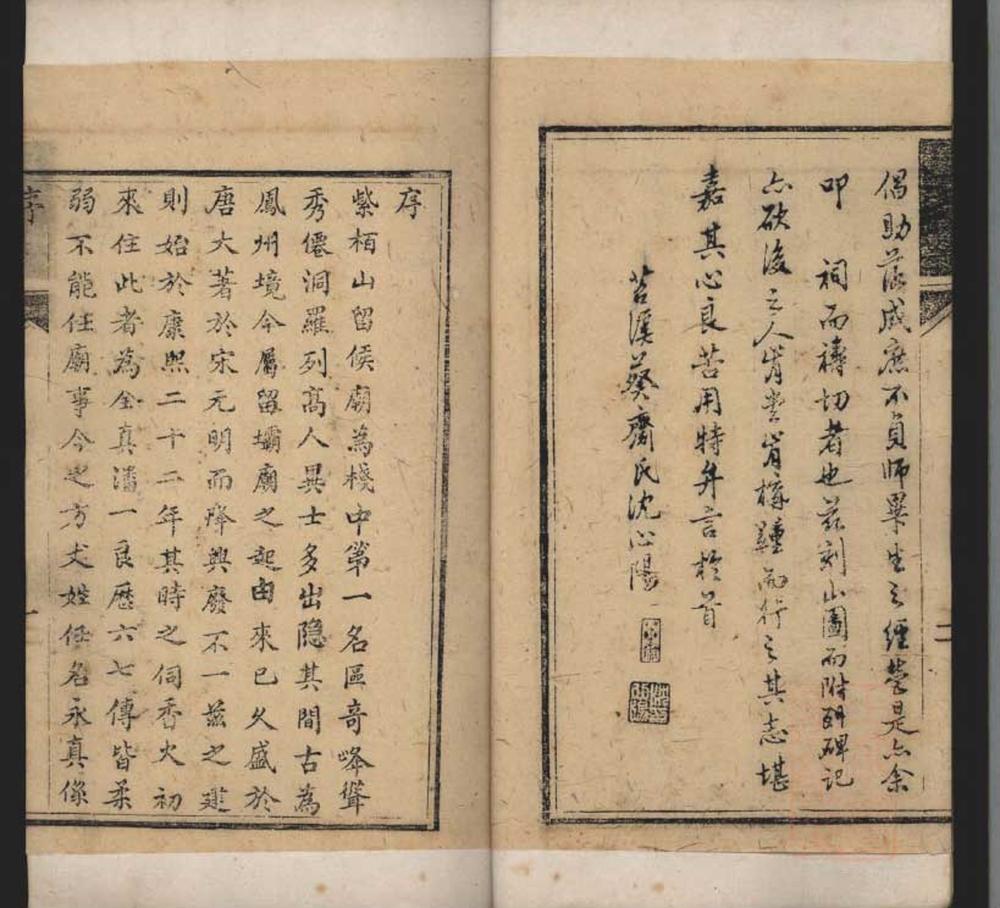 倡助落成庶不負師畢生之經營是亦余
叩　祠而禱切者也茲刻山圖而附碑記
亦欲後之人肯堂肯構踵而行之其志堪
嘉其心良苦用特弁言於首
苕溪葵齋氏沈心陽
二
序
紫栢山留侯廟為棧中第一名區奇峰聳
秀僊洞羅列高人異士多出隱其間古為
鳳州境今屬留壩廟之起由來已久盛於
唐大著於宋元明而降興廢不一茲之建
則始於康熙二十二年其時之伺香火初
來住此者為全真潘一良歷六七傳皆柔
弱不能任廟事今之方丈姓任名永真條
序
一